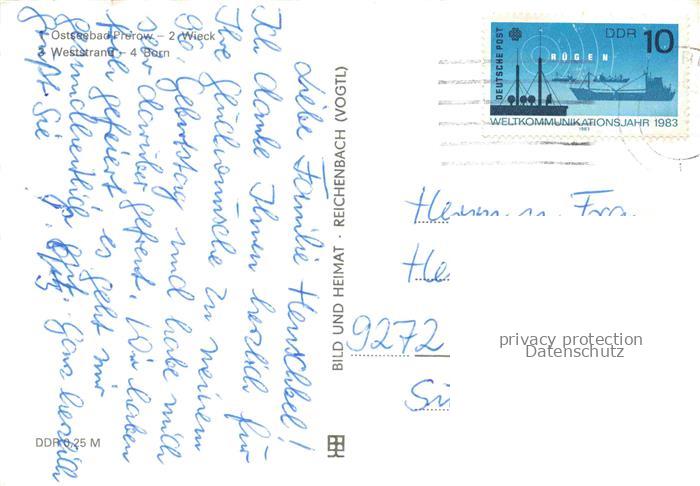 1 Ostseebad Prerow – 2 Wieck
3 Weststrand – 4 Born
Liebe Familie Henschkel!
Ich danke Ihnen herzlich für
Ihre Glückwünsche zu meinem
80. Geburtstag und habe mich
sehr darüber gefreut. Wir haben
gefeiert, es geht mir
gesundheitlich gut. Ganz herzlich
grüßt Sie
DDR 0,25 M
BILD UND HEIMAT · REICHENBACH (VOGTL)
DEUTSCHE POST
DDR 10
RÜGEN
WELTKOMMUNIKATIONSJAHR 1983
1983
Herrn u. Frau
He
9272
privacy protection
Datenschutz